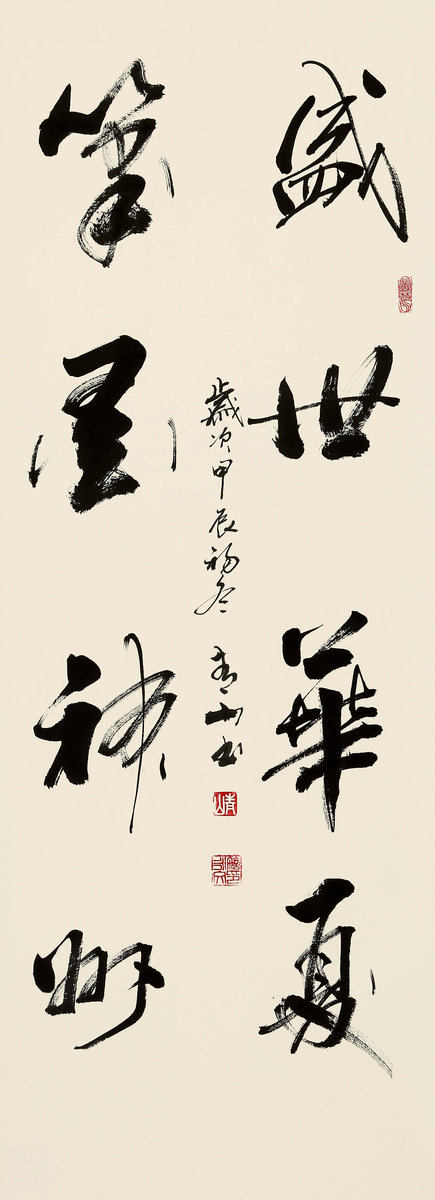 盛世華夏
筆墨神州
歲次甲辰初冬 青山书